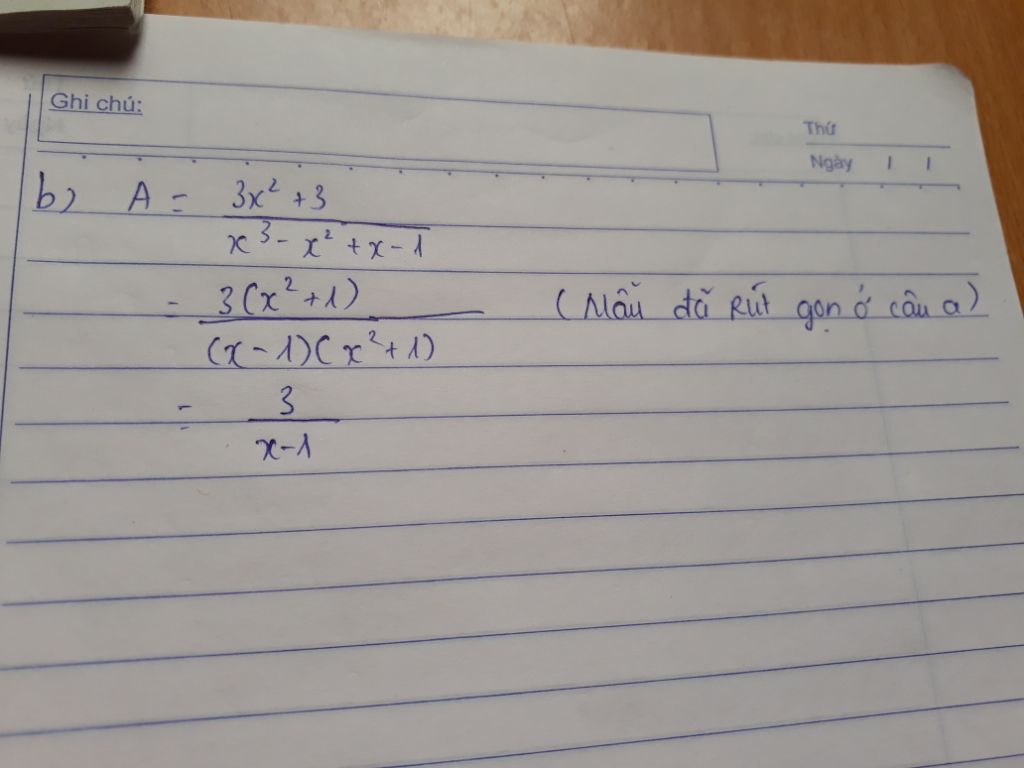 Ghi chú:
Thứ
Ngày / /
b) A = (3x² + 3) / (x³ - x² + x - 1)
= 3(x² + 1) / ((x - 1)(x² + 1)) (Mẫu đã Rút gọn ở câu a)
= 3 / (x - 1)